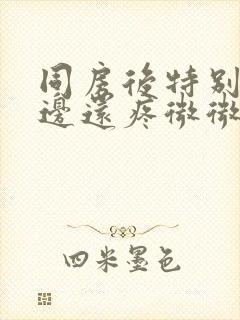 同房後特别
邊還疼微微
四米墨色